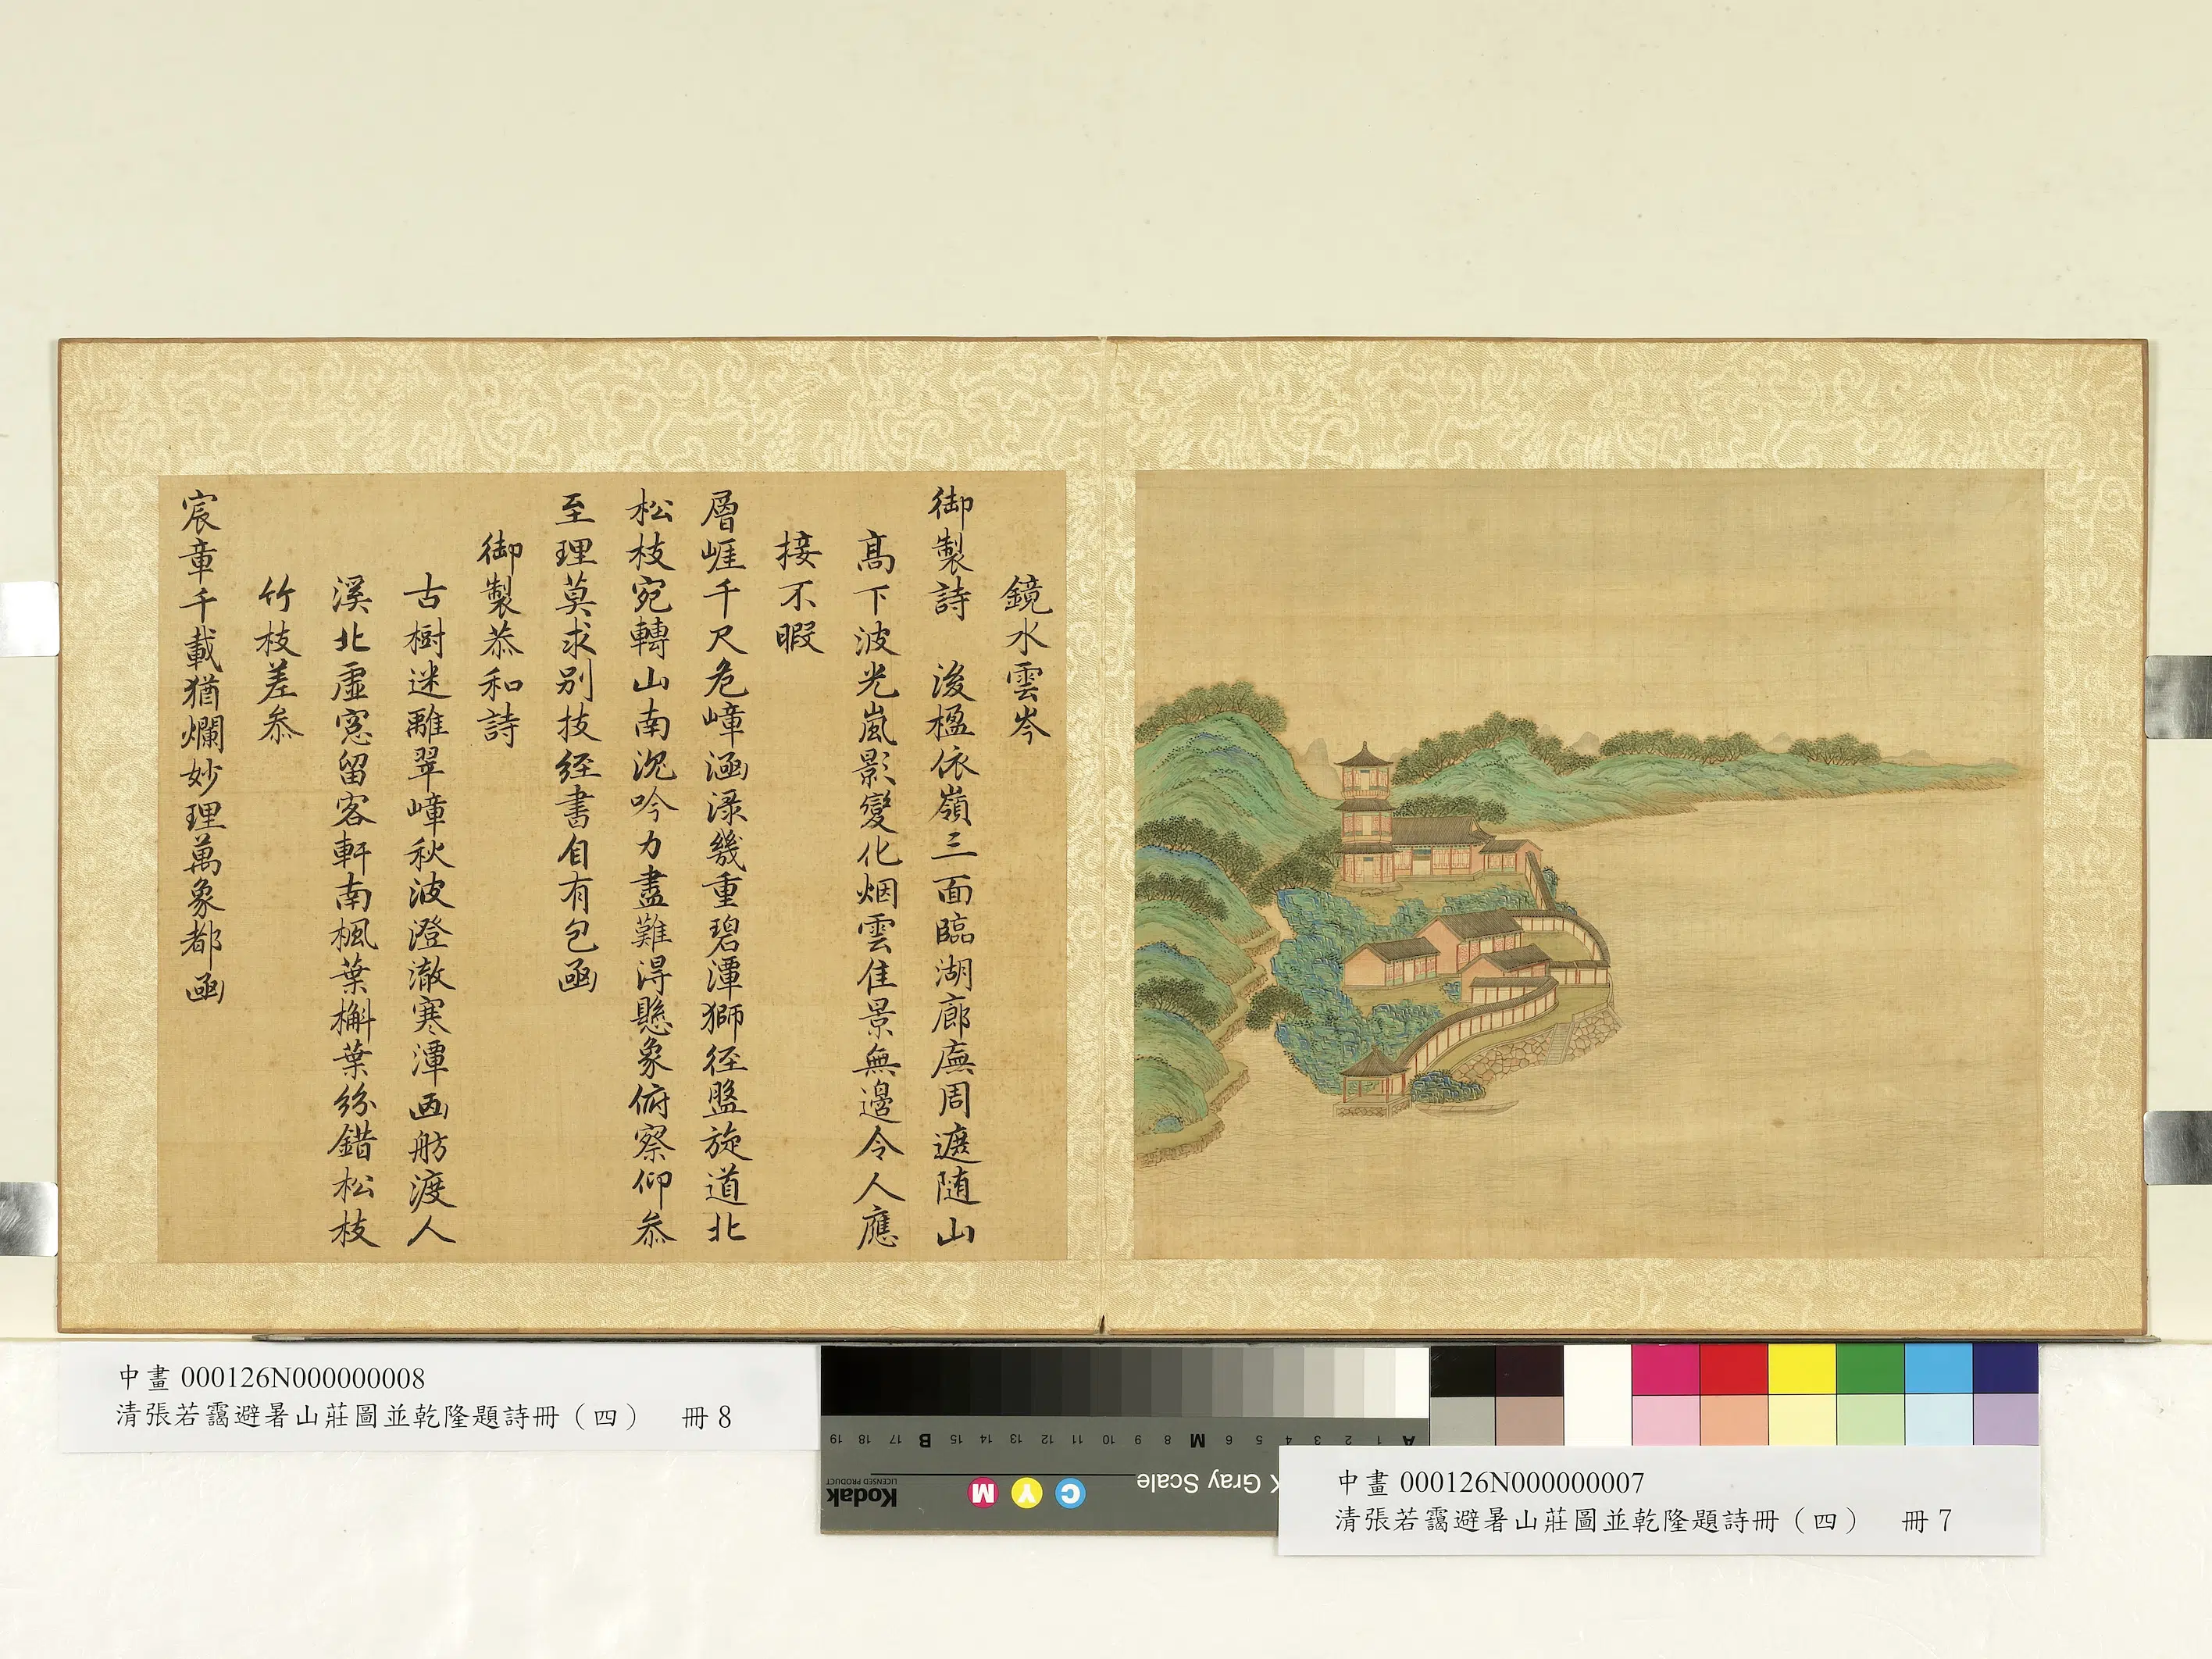 鏡水雲岑
御製詩　後楹依嶺三面臨湖廊廡周遮随山
髙下波光嵐影變化烟雲佳景無邊令人應
接不暇
層崕千尺危嶂涵渌幾重碧潭獅徑盤旋道北
松枝宛轉山南沉吟力盡難得懸象俯察仰叅
至理莫求别技經書自有包函
御製恭和詩
古樹迷離翠嶂秋波澄澈寒潭画舫渡人
溪北虛窓留客軒南楓葉槲葉紛錯松枝
竹枝差叅
宸章千載猶爛妙理萬象都函
中畫 000126N000000008
清張若靄避暑山莊圖並乾隆題詩冊（四）　冊 8
中畫 000126N000000007
清張若靄避暑山莊圖並乾隆題詩冊（四）　冊 7
A 1 2 3 4 5 6 M 8 9 10 11 12 13 14 15 B 17 18 19
Gray Scale
C Y M
Kodak
LICENSED PRODUCT